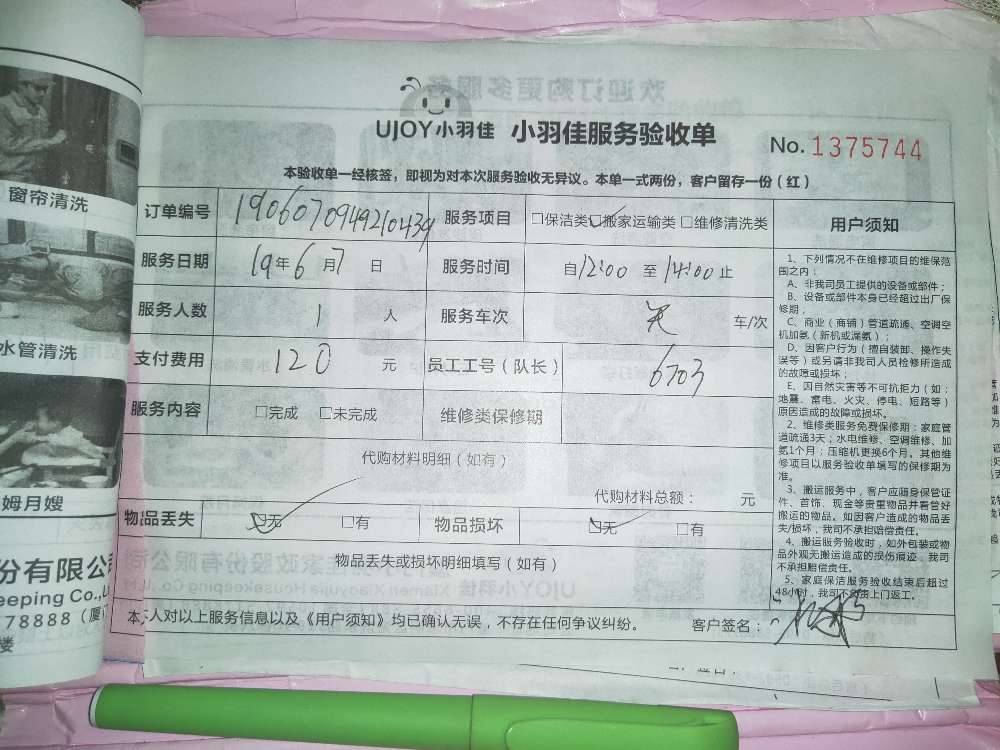 UJOY小羽佳 小羽佳服务验收单
No. 1375744
本验收单一经核签，即视为对本次服务验收无异议。本单一式两份，客户留存一份（红）
订单编号 1906070949210439 服务项目 □保洁类☑搬家运输类 □维修清洗类
服务日期 19年6月7日 服务时间 自12:00至14:00止
服务人数 1人 服务车次 车/次
支付费用 120元 员工工号（队长） 6703
服务内容 □完成 □未完成 维修类保修期
代购材料明细（如有）
代购材料总额： 元
物品丢失 ☑无 □有 物品损坏 ☑无 □有
物品丢失或损坏明细填写（如有）
本人对以上服务信息以及《用户须知》均已确认无误，不存在任何争议纠纷。 客户签名：
用户须知
1、下列情况不在维修项目的维保范
围之内：
A、非我司员工提供的设备或部件；
B、设备或部件本身已经超过出厂保
修期；
C、商业（商铺）管道疏通、空调空
机加氨（新机或漏氨）；
D、因客户行为（擅自装卸、操作失
误等）或另请非我司人员检修所造成
的故障或损坏；
E、因自然灾害等不可抗拒力（如：
地震、雷电、火灾、停电、短路等）
原因造成的故障或损坏。
2、维修类服务免费保修期：家庭管
道疏通3天；水电维修、空调维修、加
氨1个月；压缩机更换6个月。其他维
修项目以服务验收单填写的保修期为
准。
3、搬运服务中，客户应随身保管证
件、首饰、现金等贵重物品并看管好
搬运的物品。如因客户造成的物品丢
失/损坏，我司不承担赔偿责任。
4、搬运服务验收时，如外包装或物
品外观无搬运造成的损伤痕迹，我司
不承担赔偿责任。
5、家庭保洁服务验收结束后超过
48小时，我司不负责上门返工。
窗帘清洗
水管清洗
姆月嫂
份有限公
eeping Co.,L
78888（厦
楼